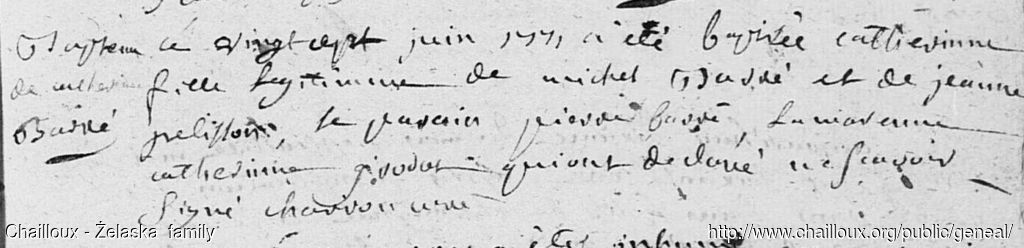 Baptême
de catherine
Barré
ce vingt sept juin 1771 a été baptisée catherinne
fille legitimme de michel Barré et de jeanne
pelisson, le parain pierre barré, la marenne
catherinne girodot qui ont declaré ne scavoir
signé charron curé
Chailloux - Żelaska family
http://www.chailloux.org/public/geneal/